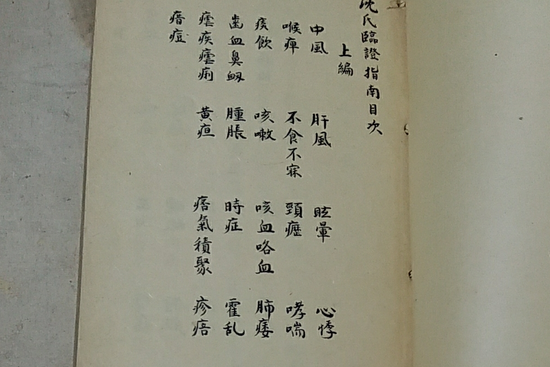 沈氏臨證指南目次
上編
中風 肝風 眩暈 心悸
喉痺 不食不寐 頸癧 哮喘
痰飲 咳嗽 咳血咯血 肺痿
齒血鼻衂 腫脹 時症 霍乱
瘧疾瘧痢 黃疸 痞氣積聚 疹㾦
瘄痘